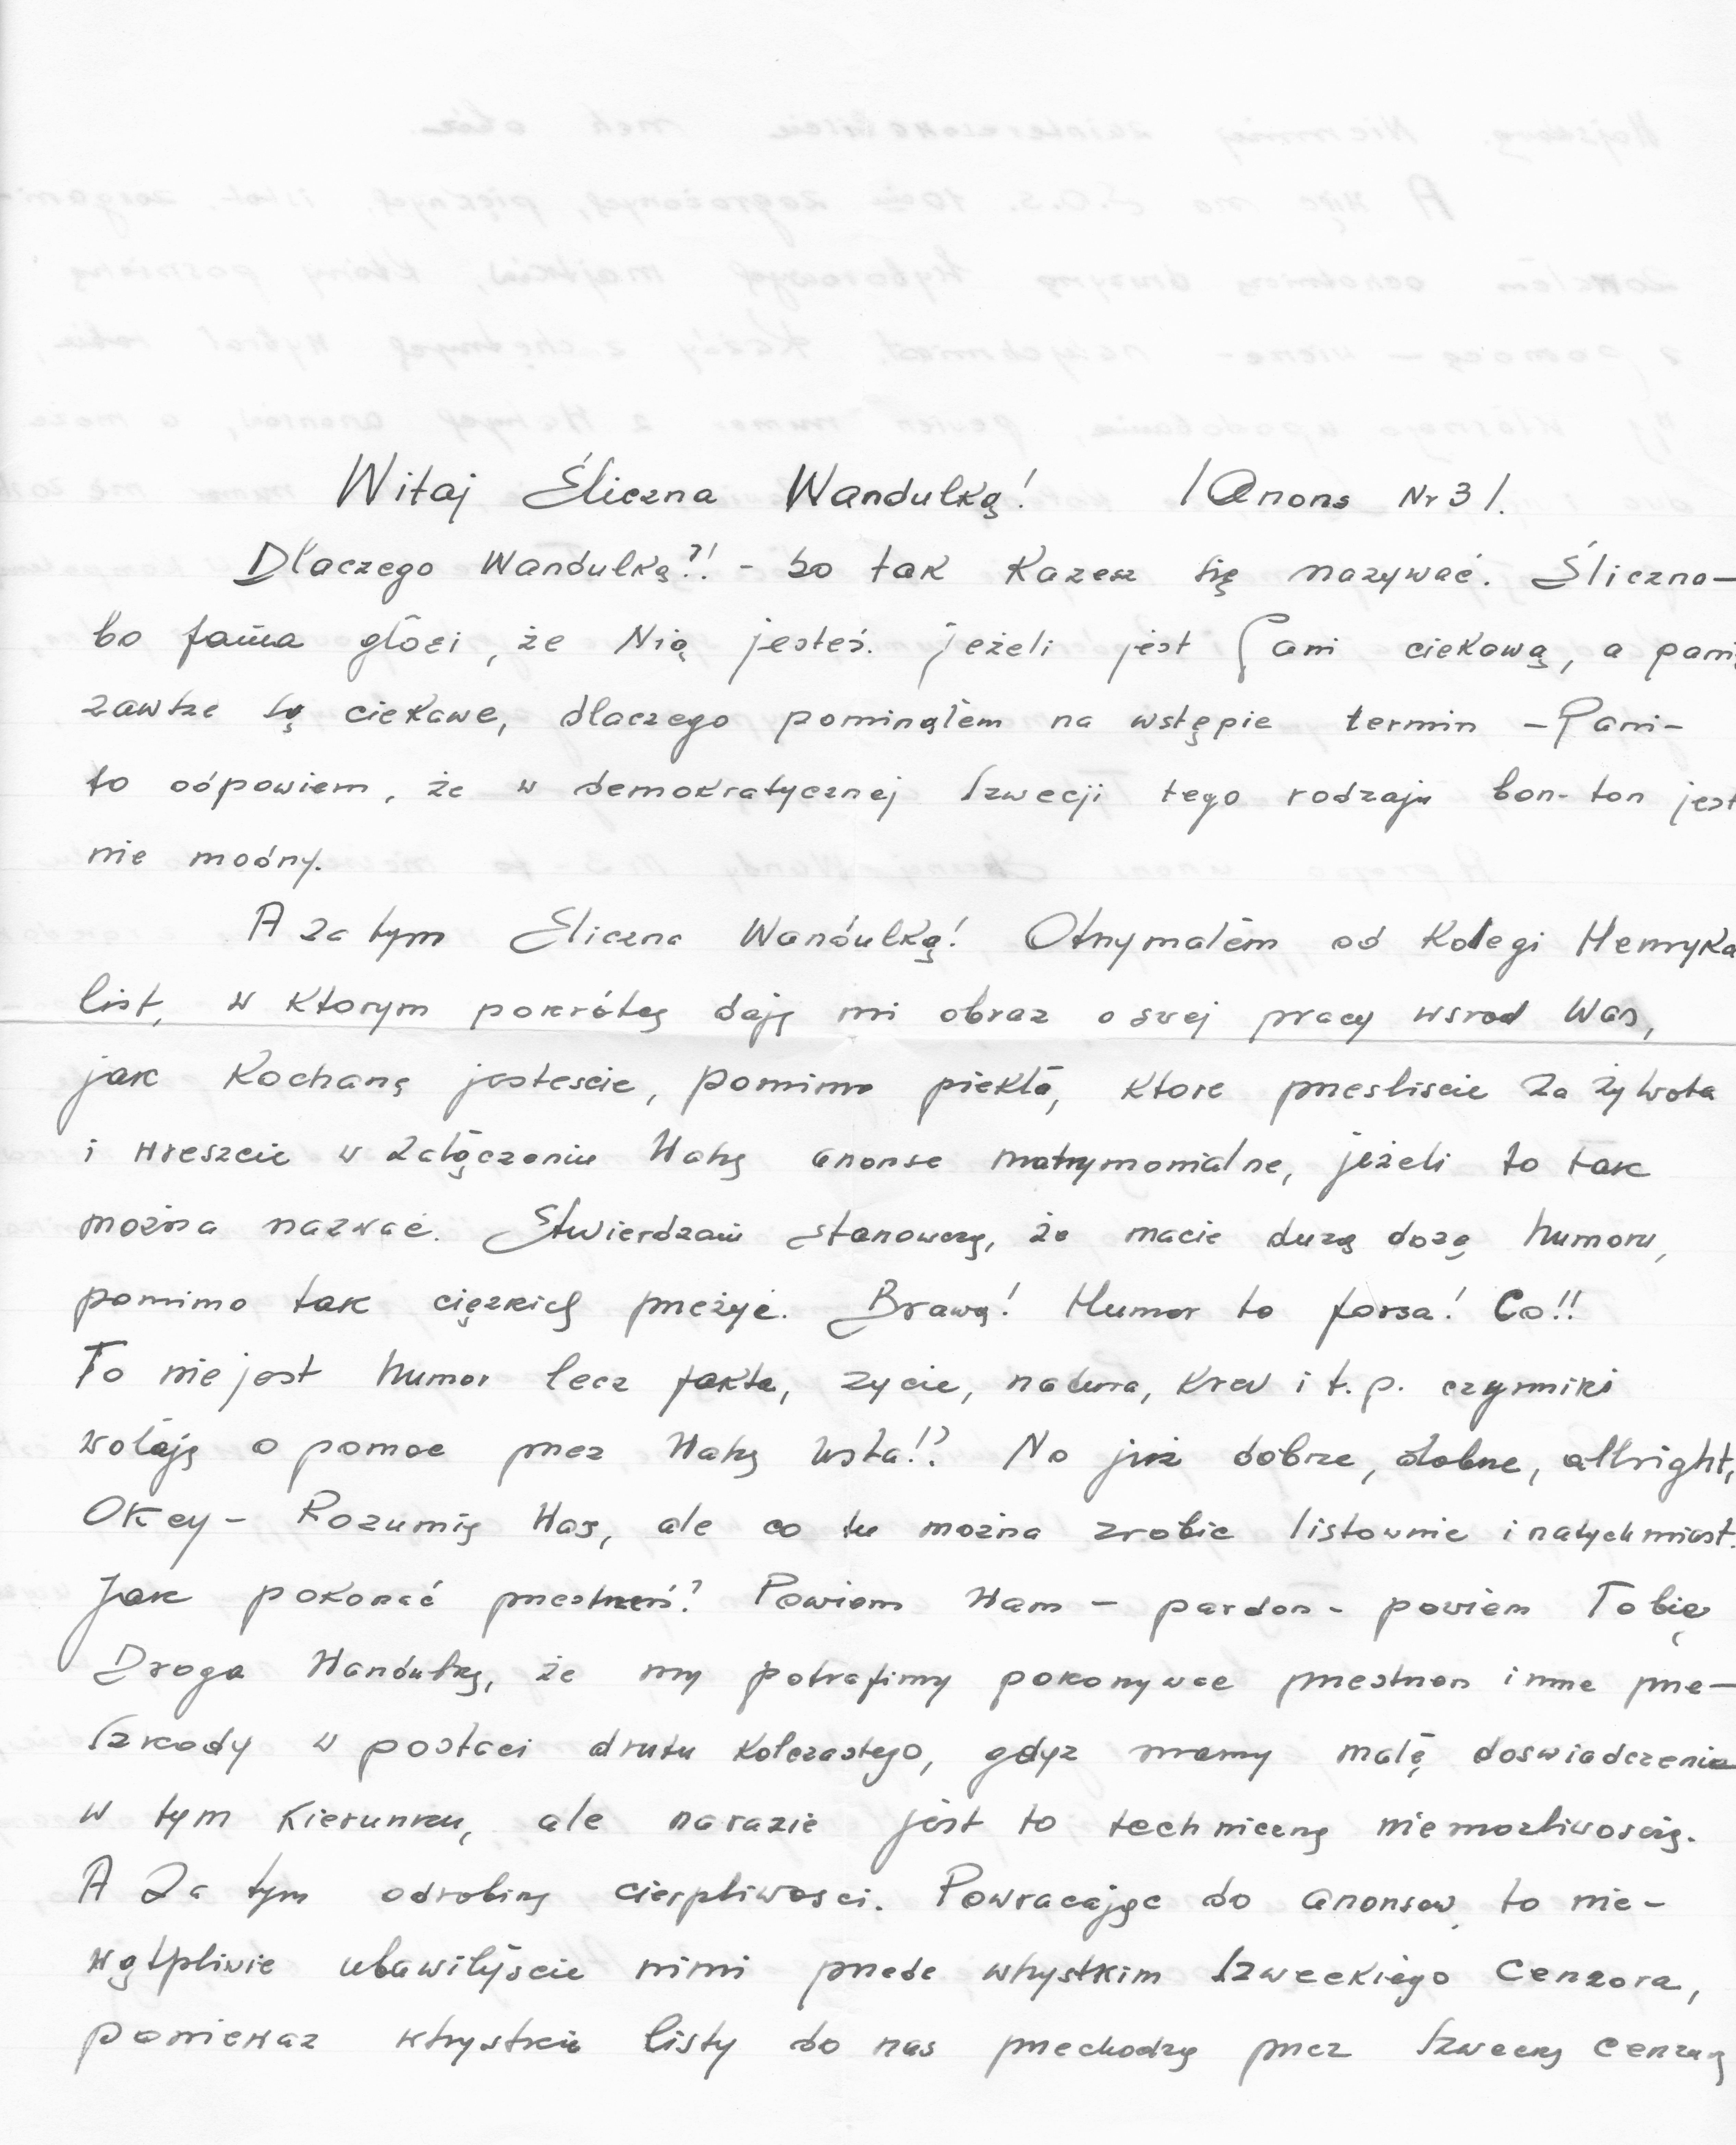 Witaj Śliczna Wandulką! /Anons Nr 3/.
Dlaczego Wandulką?! - bo tak Każesz się nazywać. Śliczna—
bo fama głosi, że Nią jesteś. jeżeli jest Pani ciekawą, a panie
zawsze są ciekawe, dlaczego pominąłem na wstępie termin —Pani—
to odpowiem, że w demokratycznej Szwecji tego rodzaju bon-ton jest
nie modny.
A za tym Śliczna Wandulką! Otrzymałem od Kolegi Henryka
list, w Ktorym pokrótcę dają mi obraz o swej pracy wsrod Was,
jak Kochanę jestescie, pomimo piekła, Ktore przeszliscie za żywota
i wreszcie w załączeniu Waszę anonse matrymonialne, jeżeli to tak
można nazwać. Stwierdzam stanowczą, że macie duzą dozę humoru,
pomimo tak cięzkich przeżyć. Brawą! Humor to forsa! Co!!
To nie jest humor lecz fakta, zycie, natura, krew i t.p. czynniki
wołają o pomoc przez Waszę usta!? No już dobrze, dobrze, allright,
Okey — Rozumię Was, ale co tu można zrobic listownie i natychmiast.
Jak pokonać przestrzeń? Powiem Wam — pardon - powiem Tobię
Droga Wandulką, że my potrafimy pokonywac przestrzen i inne prze—
szkody w postaci drutu kolczastego, gdyz mamy małę doswiadczenie
w tym Kierunku, ale narazie jest to techniczną niemozliwoscią.
A Za tym odrobinę cierpliwosci. Powracając do anonsow, to nie—
wątpliwie ubawiłyście nimi przede wszystkim szweckiego cenzora,
poniewaz wszystkie listy do nas przechodzą przez szwecką cenzurę